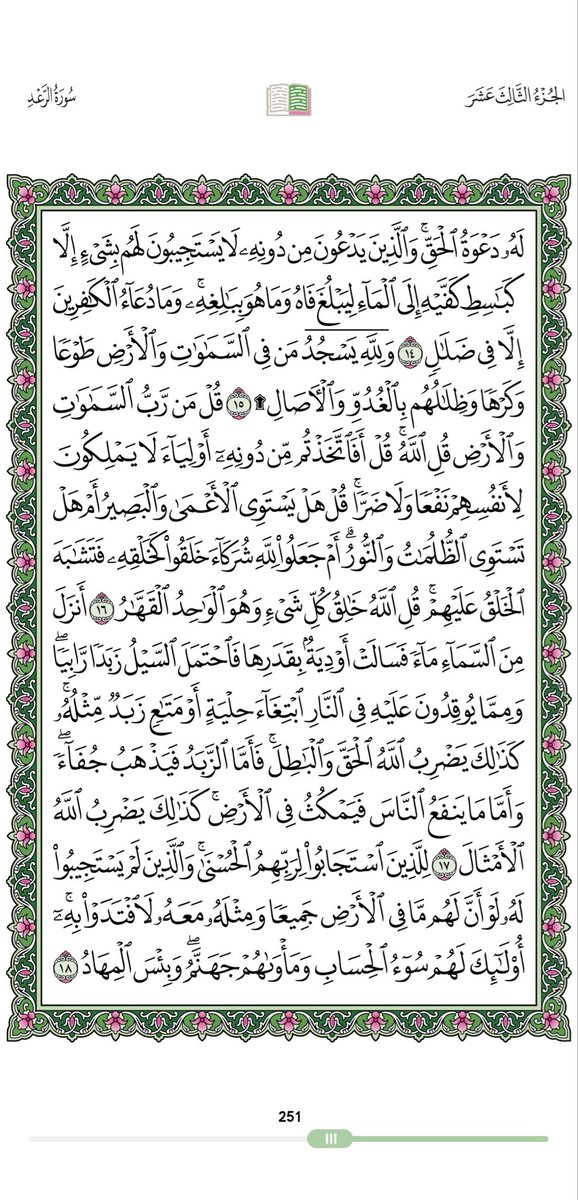 الجُزْءُ الثَّالِثَ عَشَرَ
سُورَةُ الرَّعْدِ
لَهُۥ دَعْوَةُ ٱلْحَقِّۚ وَٱلَّذِينَ يَدْعُونَ مِن دُونِهِۦ لَا يَسْتَجِيبُونَ لَهُم بِشَىْءٍ إِلَّا
كَبَٰسِطِ كَفَّيْهِ إِلَى ٱلْمَآءِ لِيَبْلُغَ فَاهُ وَمَا هُوَ بِبَٰلِغِهِۦۚ وَمَا دُعَآءُ ٱلْكَٰفِرِينَ
إِلَّا فِى ضَلَٰلٍ ١٤ وَلِلَّهِ يَسْجُدُ مَن فِى ٱلسَّمَٰوَٰتِ وَٱلْأَرْضِ طَوْعًا
وَكَرْهًا وَظِلَٰلُهُم بِٱلْغُدُوِّ وَٱلْءَاصَالِ ۩ ١٥ قُلْ مَن رَّبُّ ٱلسَّمَٰوَٰتِ
وَٱلْأَرْضِ قُلِ ٱللَّهُۚ قُلْ أَفَٱتَّخَذْتُم مِّن دُونِهِۦٓ أَوْلِيَآءَ لَا يَمْلِكُونَ
لِأَنفُسِهِمْ نَفْعًا وَلَا ضَرًّاۚ قُلْ هَلْ يَسْتَوِى ٱلْأَعْمَىٰ وَٱلْبَصِيرُ أَمْ هَلْ
تَسْتَوِى ٱلظُّلُمَٰتُ وَٱلنُّورُۗ أَمْ جَعَلُوا۟ لِلَّهِ شُرَكَآءَ خَلَقُوا۟ كَخَلْقِهِۦ فَتَشَٰبَهَ
ٱلْخَلْقُ عَلَيْهِمْۚ قُلِ ٱللَّهُ خَٰلِقُ كُلِّ شَىْءٍ وَهُوَ ٱلْوَٰحِدُ ٱلْقَهَّٰرُ ١٦ أَنزَلَ
مِنَ ٱلسَّمَآءِ مَآءً فَسَالَتْ أَوْدِيَةٌۢ بِقَدَرِهَا فَٱحْتَمَلَ ٱلسَّيْلُ زَبَدًا رَّابِيًاۖ
وَمِمَّا يُوقِدُونَ عَلَيْهِ فِى ٱلنَّارِ ٱبْتِغَآءَ حِلْيَةٍ أَوْ مَتَٰعٍ زَبَدٌ مِّثْلُهُۥۚ
كَذَٰلِكَ يَضْرِبُ ٱللَّهُ ٱلْحَقَّ وَٱلْبَٰطِلَۚ فَأَمَّا ٱلزَّبَدُ فَيَذْهَبُ جُفَآءًۖ
وَأَمَّا مَا يَنفَعُ ٱلنَّاسَ فَيَمْكُثُ فِى ٱلْأَرْضِۚ كَذَٰلِكَ يَضْرِبُ ٱللَّهُ
ٱلْأَمْثَالَ ١٧ لِلَّذِينَ ٱسْتَجَابُوا۟ لِرَبِّهِمُ ٱلْحُسْنَىٰۚ وَٱلَّذِينَ لَمْ يَسْتَجِيبُوا۟
لَهُۥ لَوْ أَنَّ لَهُم مَّا فِى ٱلْأَرْضِ جَمِيعًا وَمِثْلَهُۥ مَعَهُۥ لَٱفْتَدَوْا۟ بِهِۦٓۚ
أُو۟لَٰٓئِكَ لَهُمْ سُوٓءُ ٱلْحِسَابِ وَمَأْوَىٰهُمْ جَهَنَّمُۖ وَبِئْسَ ٱلْمِهَادُ ١٨
251